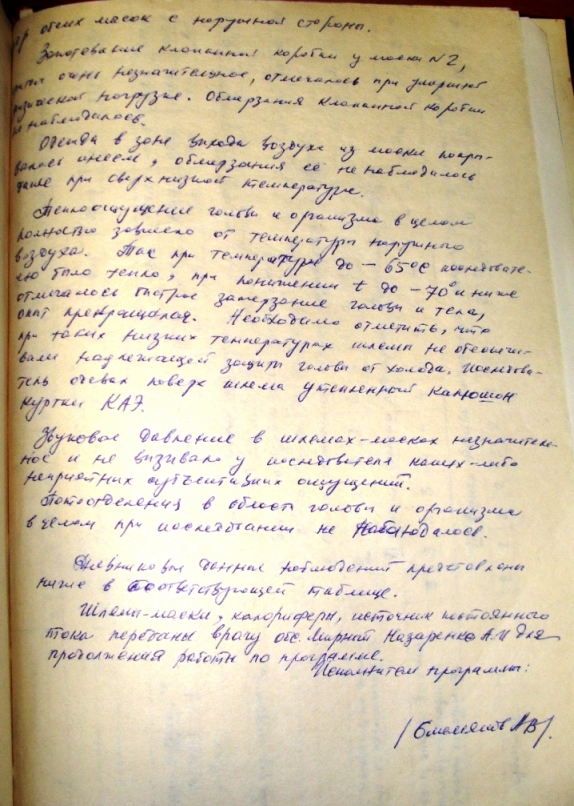 обеих масок с наружной стороны.
Запотевание клапанной коробки у маски N2,
было очень незначительное, отмечалось при ударной
физической нагрузке. Обмерзания клапанной коробки
не наблюдалось.
Одежда в зоне выхода воздуха из маски покры-
валась инеем, обмерзания её не наблюдалось
даже при сверхнизкой температуре.
Теплоощущение головы и организма в целом
полностью зависело от температуры наружного
воздуха. Так при температуре до -65°C исследовате-
лю было тепло, при понижении t до -70° и ниже
отмечалось быстрое замерзание головы и тела,
опыт прекращался. Необходимо отметить, что
при таких низких температурах шлемы не обеспечи-
вали надлежащей защиты головы от холода. Исследова-
тель одевал поверх шлема утепленный капюшон
куртки КАЭ.
Звуковое давление в шлемах-масках незначитель-
ное и не вызывало у исследователя каких-либо
неприятных субъективных ощущений.
Потоотделения в области головы и организма
в целом при исследовании не наблюдалось.
Дневниковые данные наблюдений представлены
ниже в соответствующей таблице.
Шлемы-маски, калориферы, источник постоянного
тока переданы врачу обс. Мирный Назаренко А.И для
продолжения работы по программе.
Исполнители программы: